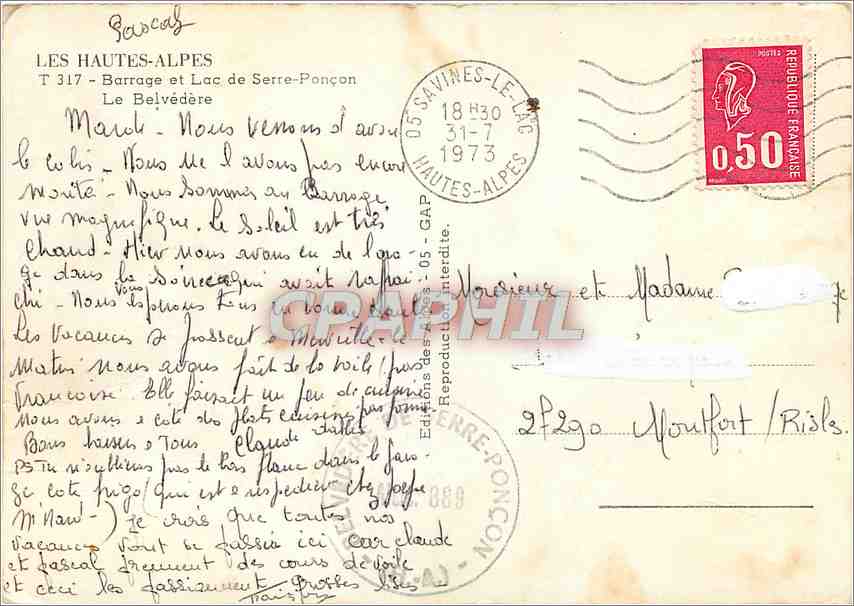 Pascal
LES HAUTES-ALPES
T 317 - Barrage et Lac de Serre-Ponçon
Le Belvédère
Mardi - Nous venons d'avoir
le colis - Nous ne l avons pas encore
monté - Nous sommes au Barrage
vue magnifique. Le Soleil est très
chaud - Hier nous avons eu de l'ora-
ge dans la qui avait rafrai
chi - Nous vous espérons tous en bonne santé
Les vacances se passent à merveille - le
Matin nous avons fait de la voile (pas
Françoise. Elle faisait un peu de cuisine
Nous avons à côté des plats cuisinés pas fameux
Bons baisers à Tous Claude
PS Tu n'oublieras pas le bas blanc dans le gara-
ge côté frigo (qui est à expédier chez
) je crois que toutes nos
vacances vont se passer ici car claude
et pascal prennent des cours de voile
et ceci les passionnent Grosses bises
Françoise
Editions des Alpes - 05 - GAP
Reproduction interdite.
05 SAVINES-LE-LAC
18 H30
31-7
1973
HAUTES-ALPES
POSTES
REPUBLIQUE FRANÇAISE
0,50
Monsieur et Madame
27290 Montfort/Risle
BELVEDERE DE SERRE-PONÇON
889
CPAPHIL